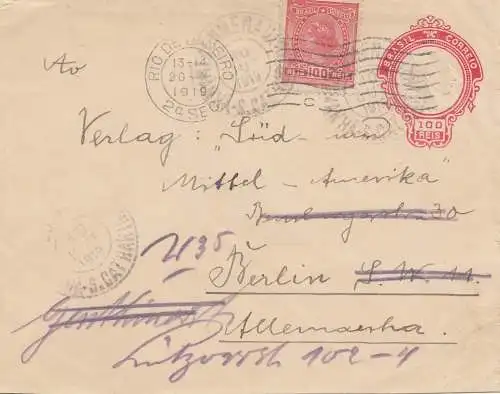 BRASIL CORREIO
100 REIS
BRASIL CORREIO
100 RÉIS
RIO DE JANEIRO
13-14
20-
1919
2ª SEC
Ao
Verlag: "Süd- und
Mittel-Amerika"
W 35
Berlin S.W. 11.
Allemanha.
Lützowstr 102-4
S. CATHARINA